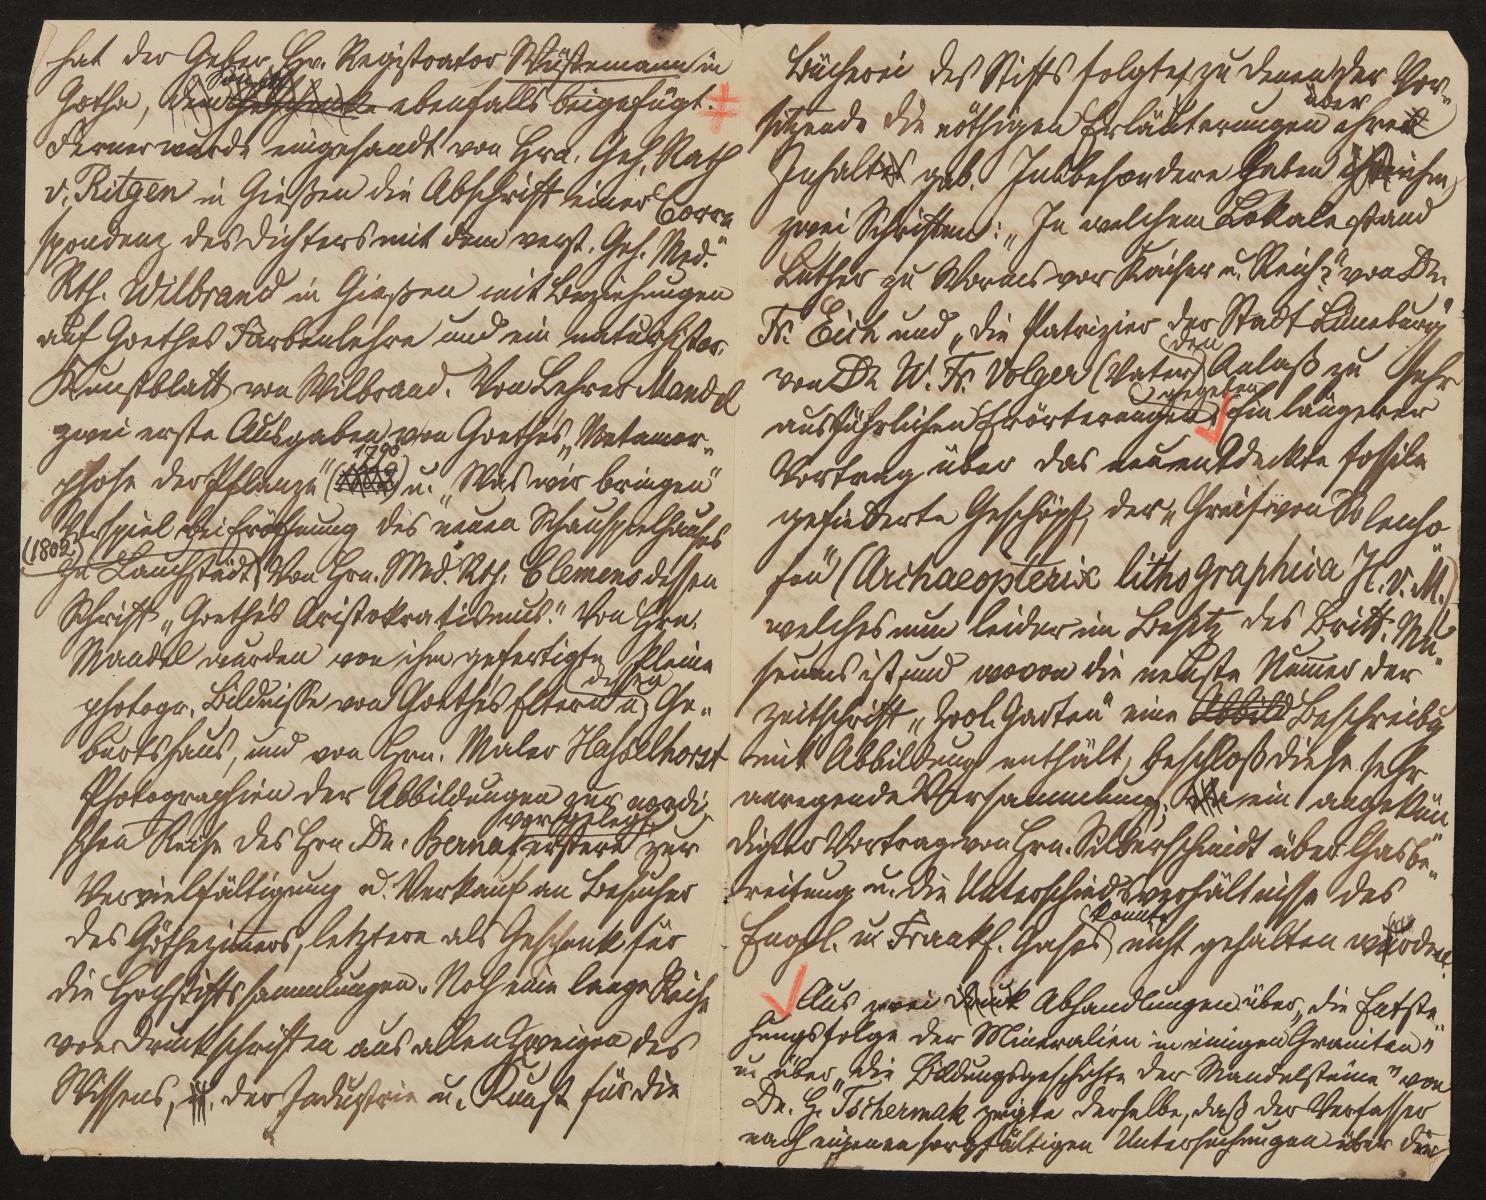 hat der Geber, Hr. Registrator Wüstemann in
Gotha, ebenfalls beigefügt.
Ferner wurde eingesandt von Hrn. Geh. Rath
v. Ritgen in Gießen die Abschrift einer Corre
spondenz des Dichters mit dem verst. Geh. Med.
Rth. Wilbrand in Gießen mit Beziehungen
auf Goethes Farbenlehre und ein naturhistor.
Kunstblatt von Wilbrand. Von Lehrer Mandel
zwei erste Ausgaben von Goethe's „Metamor-
1790
phose der Pflanze" (1802) u. „Was wir bringen"
Vorspiel bei Eröffnung des neuen Schauspielhauses
(1802)
zu Lauchstädt. Von Hrn. Med. Rth. Clemens dessen
Schrift „Goethe's Aristokratismus." Von Hrn.
Mandel wurden von ihm gefertigte kleine
dessen
photogr. Bildnisse von Goethe's Eltern u. Ge-
burtshaus, und von Hrn. Maler Haßelhorst
Photographien der Abbildungen zur nordi-
vorgelegt
schen Reise des Hrn. Dr. Berna, erstere zur
Vervielfältigung u. Verkauf an Besucher
des Göthezimmers, letztere als Geschenk für
die Hochstiftssammlungen. Noch eine lange Reihe
von Druckschriften aus allen Zweigen des
Wissens, der Industrie u. Kunst für die
Bücherei des Stifts folgte, zu denen der Vor-
über
sitzende die nöthigen Erläuterungen ihren
Inhalt gab. Insbesondere gaben ihm
zwei Schriften: „In welchem Lokale stand
Luther zu Worms vor Kaiser u. Reich?" von Dr.
Fr. Eich und „Die Patrizier der Stadt Lüneburg"
den
von Dr. W. Fr. Volger (Vater) Anlaß zu sehr
gegeben
ausführlichen Erörterungen. Ein längerer
Vortrag über das neuentdeckte fossile
gefiederte Geschöpf, der „Greif von Solenho
fen" (Archaeopterix lithographica H. v. M.)
welches nun leider im Besitz des Britt. Mu-
seums ist und wovon die neuste Numer der
Zeitschrift „Zool. Garten" eine Abbild Beschreibg
mit Abbildung enthält, beschloß diese sehr
anregende Versammlung; ein angekün
digter Vortrag von Hrn. Silberschmidt über Gasbe-
reitung u. die Unterschiedsverhältnisse des
konnte
Engl. u. Frankf. Gases nicht gehalten werden.
Aus zwei Druck Abhandlungen über „die Entste
hungsfolge der Mineralien in einigen Graniten"
u. über „die Bildungsgeschichte der Mandelsteine" von
Dr. G. Tschermak zeigte derselbe, daß der Verfasser
nach eigenen sorgfältigen Untersuchungen über den